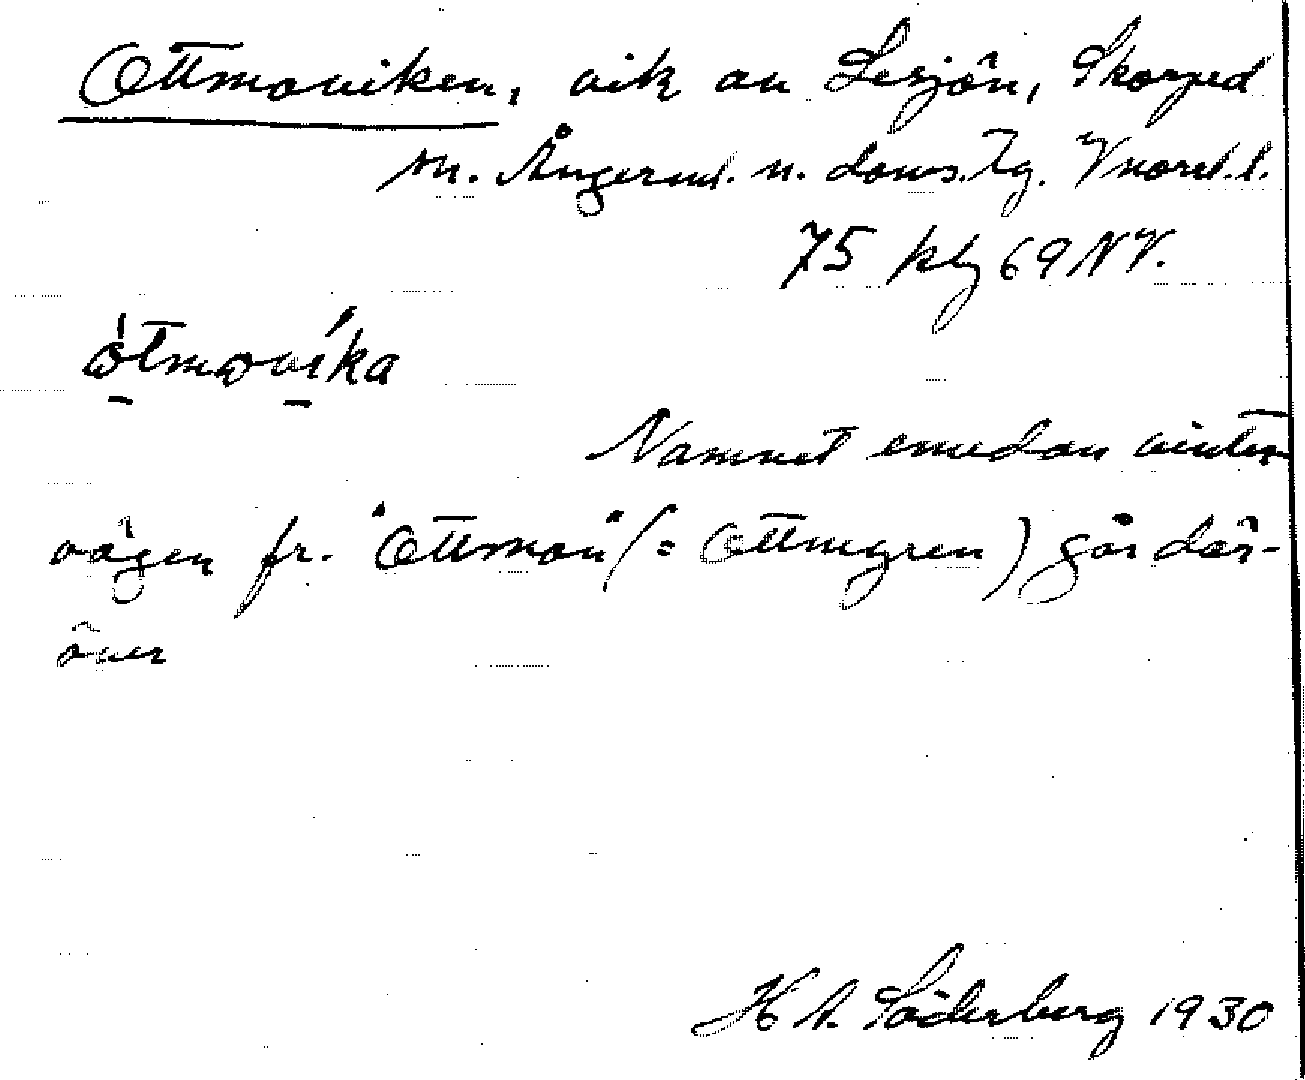 Ottmoviken, vik av Lesjön, Skorped
sn. Ångerml. n. doms.tg. Vnorrl. l.
75 kbl 69 NV.
Namnet emedan vinter
vägen fr. "Ottmon" (= Ottmyren) går där-
över
H A. Söderberg 1930